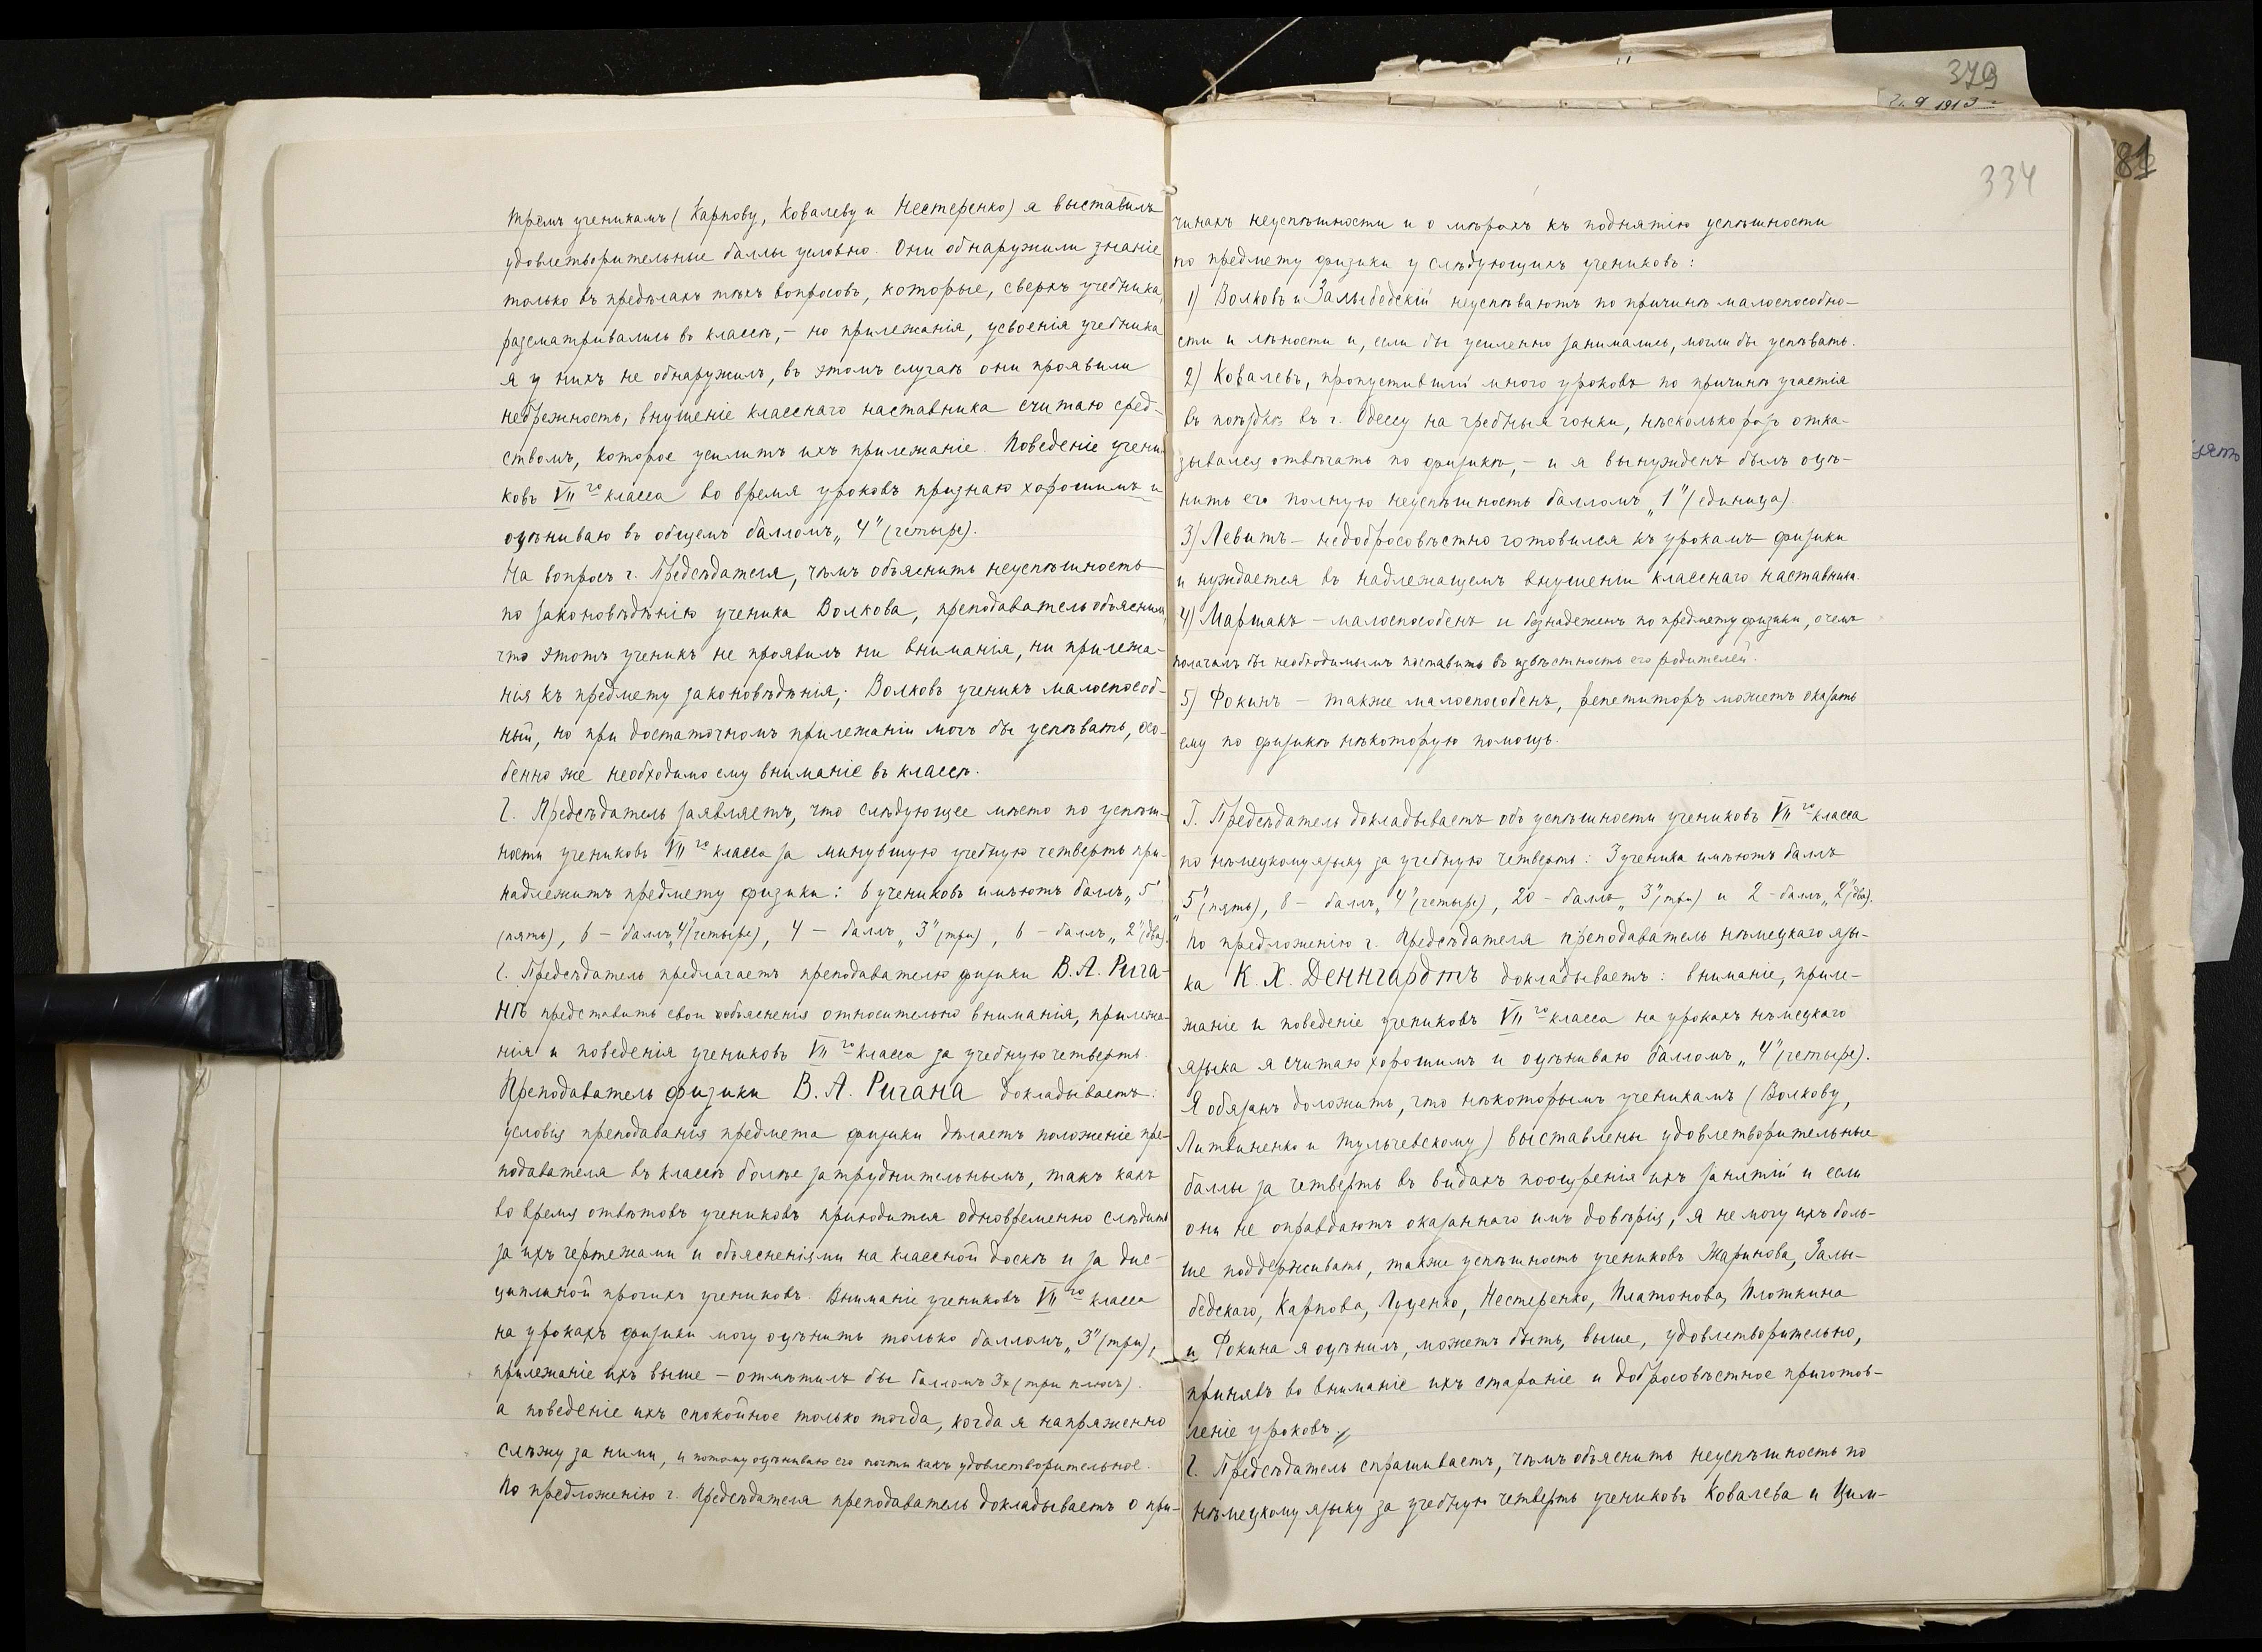 тремъ ученикамъ (Карпову, Ковалеву и Нестеренко) я выставилъ
удовлетворительные баллы условно. Они обнаружили знаніе
только въ предѣлахъ тѣхъ вопросовъ, которые, сверхъ учебника,
разсматривались въ классѣ, – но прилежанія, усвоенія учебника
я у нихъ не обнаружилъ, въ этомъ случаѣ они проявили
небрежность; внушеніе класснаго наставника считаю сред-
ствомъ, которое усилитъ ихъ прилежаніе. Поведеніе учени-
ковъ VII го класса во время уроковъ признаю хорошимъ и
оцѣниваю въ общемъ балломъ „4" (четыре).
На вопросъ г. Предсѣдателя, чѣмъ объяснить неуспѣшность
по законовѣдѣнію ученика Волкова, преподаватель объяснилъ,
что этотъ ученикъ не проявилъ ни вниманія, ни прилежа-
нія къ предмету законовѣдѣнія; Волковъ ученикъ малоспособ-
ный, но при достаточномъ прилежаніи могъ бы успѣвать, осо-
бенно же необходимо ему вниманіе въ классѣ.
Г. Предсѣдатель заявляетъ, что слѣдующее мѣсто по успѣш-
ности учениковъ VII го класса за минувшую учебную четверть при-
надлежитъ предмету физики: 6 учениковъ имѣютъ баллъ „5"
(пять), 6 – баллъ „4" (четыре), 4 – баллъ „3" (три), 6 – баллъ „2" (два).
Г. Предсѣдатель предлагаетъ преподавателю физики В. А. Рига-
нѣ представить свои объясненія относительно вниманія, прилежа-
нія и поведенія учениковъ VII го класса за учебную четверть.
Преподаватель физики В. А. Ригана докладываетъ:
условія преподаванія предмета физики дѣлаетъ положеніе пре-
подавателя въ классѣ болѣе затруднительнымъ, такъ какъ
во время отвѣтовъ учениковъ приходится одновременно слѣдить
за ихъ чертежами и объясненіями на классной доскѣ и за дис-
циплиной прочихъ учениковъ. Вниманіе учениковъ VII го класса
на урокахъ физики могу оцѣнить только балломъ „3" (три),
прилежаніе ихъ выше – отмѣтилъ бы балломъ 3+ (три плюсъ).
а поведеніе ихъ спокойное только тогда, когда я напряженно
слѣжу за ними, и потому оцѣниваю его почти какъ удовлетворительное.
По предложенію г. Предсѣдателя преподаватель докладываетъ о при-
379
1913
81
334
чинахъ неуспѣшности и о мѣрахъ къ поднятію успѣшности
по предмету физики у слѣдующихъ учениковъ:
1) Волковъ и Залыбедскій неуспѣваютъ по причинѣ малоспособно-
сти и лѣности и, если бы усиленно занимались, могли бы успѣвать.
2) Ковалевъ, пропустившій много уроковъ по причинѣ участія
въ поѣздкѣ въ г. Одессу на гребныя гонки, нѣсколько разъ отка-
зывался отвѣчать по физикѣ, – и я вынужденъ былъ оцѣ-
нить его полную неуспѣшность балломъ „1" (единица).
3) Левитъ – недобросовѣстно готовился къ урокамъ физики
и нуждается въ надлежащемъ внушеніи класснаго наставника.
4) Маршакъ – малоспособенъ и безнадеженъ по предмету физики, о чемъ
полагалъ бы необходимымъ поставить въ извѣстность его родителей.
5) Фокинъ – также малоспособенъ, репетиторъ можетъ оказать
ему по физикѣ нѣкоторую помощь.
Г. Предсѣдатель докладываетъ объ успѣшности учениковъ VII го класса
по нѣмецкому языку за учебную четверть: 3 ученика имѣютъ баллъ
„5" (пять), 8 – баллъ „4" (четыре), 20 – баллъ „3" (три) и 2 – баллъ „2" (два).
По предложенію г. Предсѣдателя преподаватель нѣмецкаго язы-
ка К. Х. Деннгардтъ докладываетъ: вниманіе, приле-
жаніе и поведеніе учениковъ VII го класса на урокахъ нѣмецкаго
языка я считаю хорошимъ и оцѣниваю балломъ „4" (четыре).
Я обязанъ доложить, что нѣкоторымъ ученикамъ (Волкову,
Литвиненко и Тульчевскому) выставлены удовлетворительные
баллы за четверть въ видахъ поощренія ихъ занятій и если
они не оправдаютъ оказаннаго имъ довѣрія, я не могу ихъ боль-
ше поддерживать, также успѣшность учениковъ Жаринова, Залы-
бедскаго, Карпова, Луценко, Нестеренко, Платонова, Плоткина
и Фокина я оцѣнилъ, можетъ быть, выше, удовлетворительно,
принявъ во вниманіе ихъ стараніе и добросовѣстное приготов-
леніе уроковъ.
Г. Предсѣдатель спрашиваетъ, чѣмъ объяснить неуспѣшность по
нѣмецкому языку за учебную четверть учениковъ Ковалева и Цим-